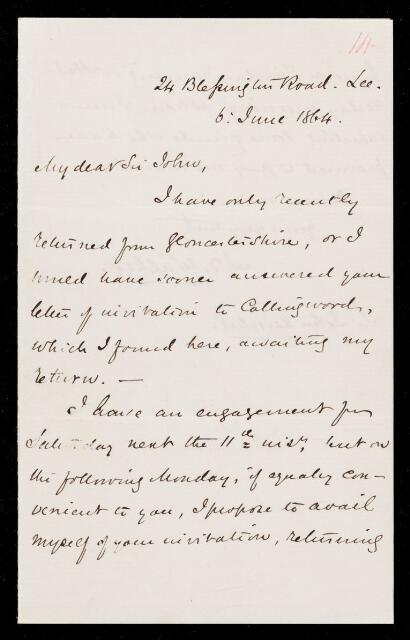 14
24 Blessington Road. Lee.
6: June 1864.
My dear Sir John,
I have only recently
returned from Gloucestershire, or I
would have sooner answered your
letter of invitation to Collingwood,
which I found here, awaiting my
return. —
I have an engagement for
Saturday next the 11th inst, but on
the following Monday, if equally con-
venient to you, I propose to avail
myself of your invitation, returning